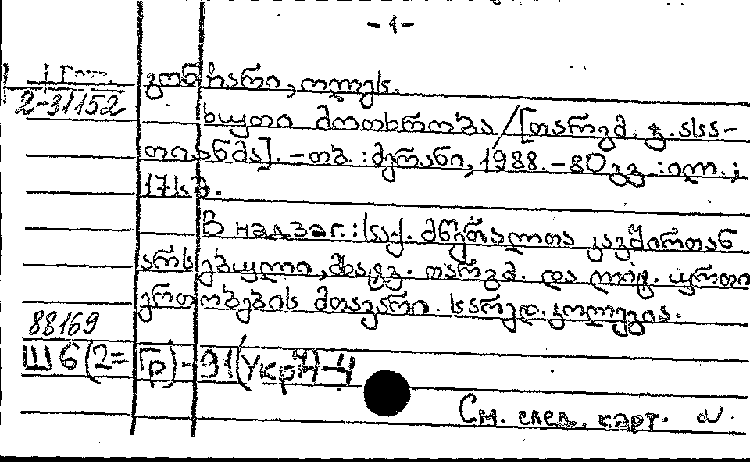 - 1 -
2-31152 გონჩარი, ოლეს.
ხუთი მოთხრობა / [თარგმ. გ. ასა-
თიანმა]. – თბ. : მერანი, 1988. – 80 გვ. : ილ. ;
17 სმ.
В надзаг.: საქ. მწერალთა კავშირთან
არსებული, მხატვ. თარგმ. და ლიტ. ურთი
ერთობების მთავარი სარედ. კოლეგია.
88169
Ш6(2=Гр)-91(Укр)-4
См. след. карт.